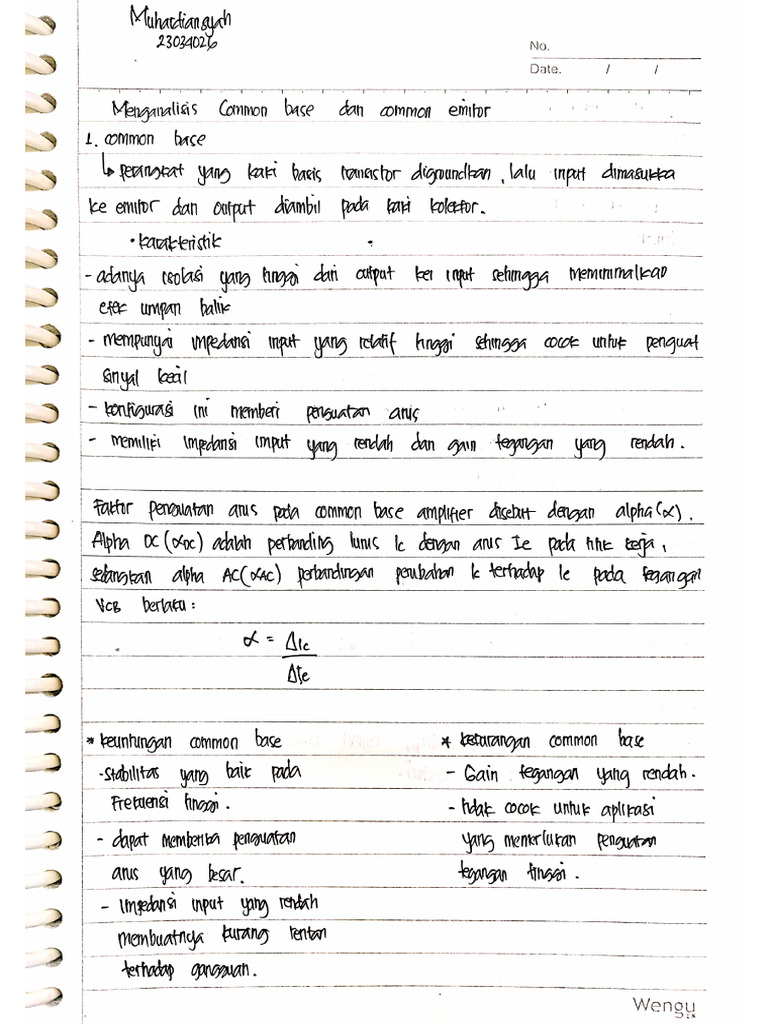 Muhardiansyah
23034026
No.
Date. / /
Menganalisis Common base dan common emitor
1. common base
↳ perangkat yang kaki basis transistor digroundkan, lalu input dimasukka
ke emitor dan output diambil pada kaki kolektor.
• karakteristik
- adanya isolasi yang tinggi dari output kei input sehingga meminimalkan
efek umpan balik
- mempunyai impedansi input yang relatif tinggi sehingga cocok untuk penguat
sinyal kecil
- konfigurasi ini memberi penguatan arus
- memiliki impedansi input yang rendah dan gain tegangan yang rendah.
Faktor penguatan arus pada common base amplifier disebut dengan alpha (α).
Alpha DC (αDC) adalah perbanding lurus Ic dengan arus Ie pada titik kerja,
sedangkan alpha AC (αAC) perbandingan perubahan Ic terhadap Ie pada tegangan
VCB berlaku:
α = ΔIc
ΔIe
* keuntungan common base
- Stabilitas yang baik pada
Frekuensi tinggi.
- dapat memberika penguatan
arus yang besar.
- Impedansi input yang rendah
membuatnya kurang rentan
terhadap gangguan.
* kekurangan common base
- Gain tegangan yang rendah.
- tidak cocok untuk aplikasi
yang memerlukan penguatan
tegangan tinggi.
Wengu